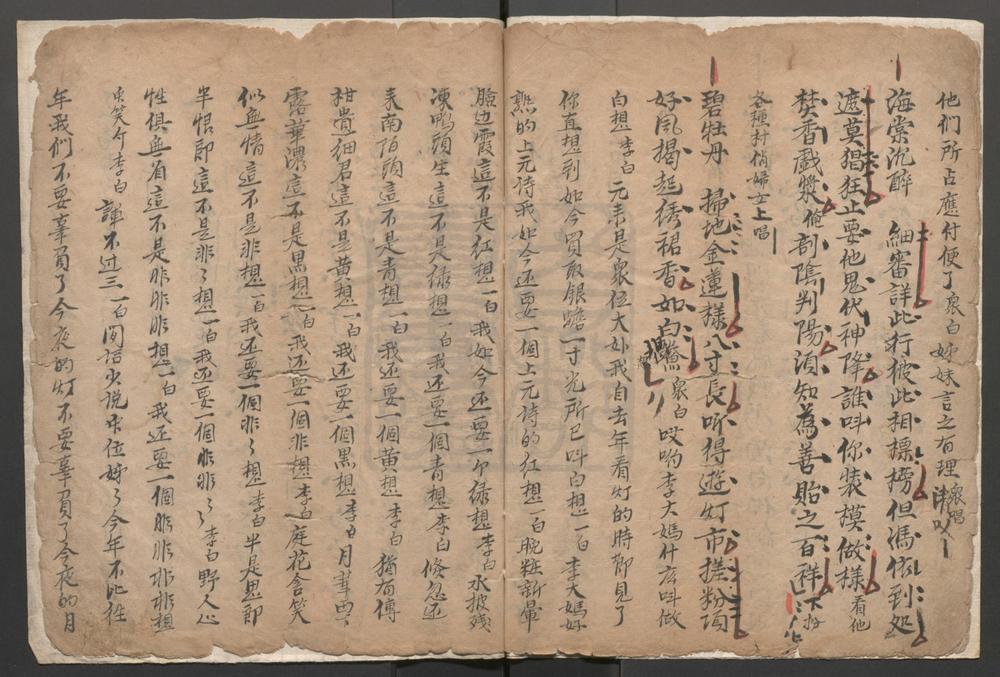 他们所占應付便了 衆白 姊妹言之有理 衆唱
海棠沉醉 細審詳此行彼此相標榜但馮依到処
遮莫猖狂止要他鬼代神降誰呌你装模做様 看他
焚香戯漿 俺剖陰判陽須知為善貽之百祥 下
各種村俏婦女上唱
碧牡丹 掃地金蓮樣八寸長听得遊灯市搓粉項
好風揭起绣裙香如白鷺 衆白 哎喲李大媽什庅呌做
白想 李白 元来是衆位大妳我自去年看灯的時節見了
你直想到如今買敢銀蟾一寸光所已呌白想 一白 李大媽好
熟的上元诗我如今还要一個上元诗的红想 一白 晚粧新暈
臉边霞這不是红想 一白 我如今还要一个绿想 李白 水披残
凍鴨頭生這不是緑想 一白 我还要一個青想 李白 倏忽还
来南陌頭這不是青想 一白 我还要一個黄想 李白 猶有傳
柑貴细君這不是黄想 一白 我还要一個黒想 李白 月華雲
露華濃這不是黒想 一白 我还要一個非想 李白 庭花含笑
似無情這不是非想 一白 我还要一個非々想 李白 半是思郎
半恨郎這不是非々想 一白 我还要一個非非々々 李白 野人心
性俱無省這不是非非非想 一白 我还要一個非非非非想
衆笑介李白 諢不过三 一白 閑话少说衆位姊々今年不比徃
年我们不要辜負了今夜的灯不要辜負了今夜的月